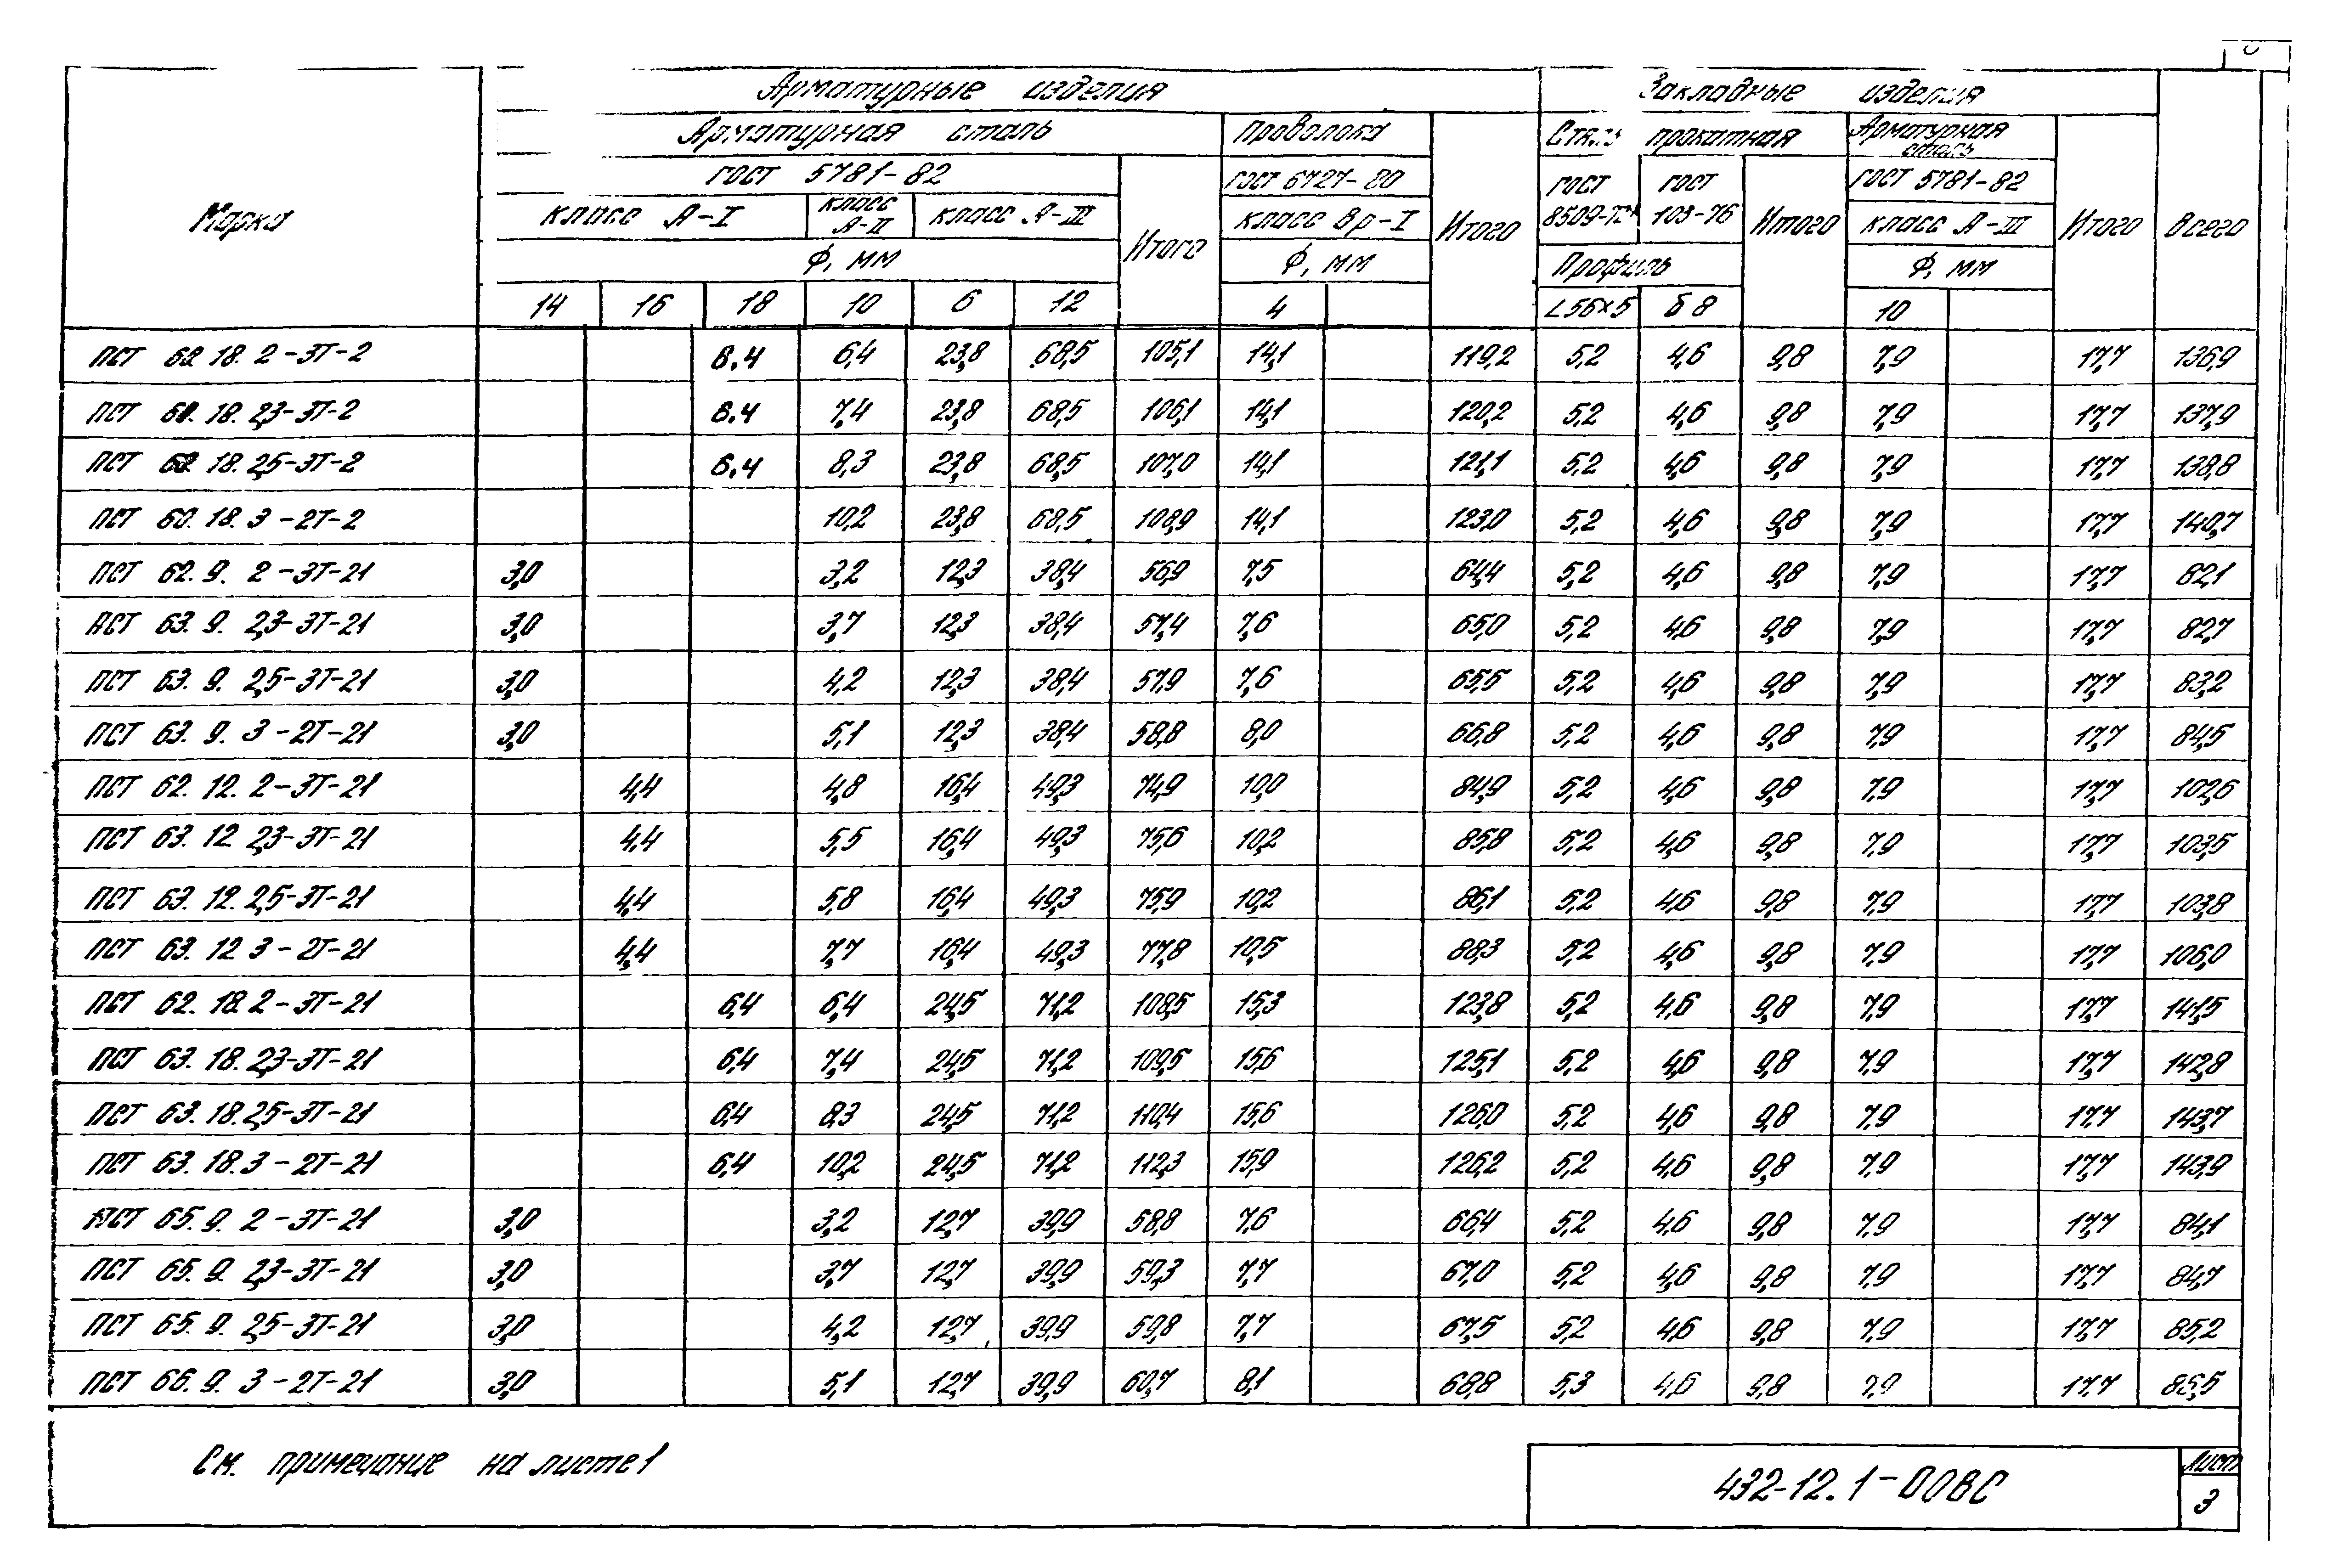 Марка
Арматурные изделия
Закладные изделия
Всего
Арматурная сталь
Проволока
Итого
Сталь прокатная
Арматурная сталь
Итого
ГОСТ 5781-82
Итого
ГОСТ 6727-80
ГОСТ 8509-72*
ГОСТ 103-76
Итого
ГОСТ 5781-82
класс А-I
класс А-II
класс А-III
класс Вр-I
класс А-III
Ф, мм
Ф, мм
Профиль
Ф, мм
14 16 18 10 6 12 4 L56×5 δ8 10
ПСТ 60. 18. 2-3Т-2 6.4 6,4 23,8 68,5 105,1 14,1 119,2 5,2 4,6 9,8 7,9 17,7 136,9
ПСТ 60. 18. 2,3-3Т-2 6.4 7,4 23,8 68,5 106,1 14,1 120,2 5,2 4,6 9,8 7,9 17,7 137,9
ПСТ 60 18. 2,5-3Т-2 6.4 8,3 23,8 68,5 107,0 14,1 121,1 5,2 4,6 9,8 7,9 17,7 138,8
ПСТ 60. 18. 3-2Т-2 10,2 23,8 68,5 108,9 14,1 123,0 5,2 4,6 9,8 7,9 17,7 140,7
ПСТ 62. 9. 2-3Т-21 3,0 3,2 12,3 38,4 56,9 7,5 64,4 5,2 4,6 9,8 7,9 17,7 82,1
ПСТ 63. 9. 2,3-3Т-21 3,0 3,7 12,3 38,4 57,4 7,6 65,0 5,2 4,6 9,8 7,9 17,7 82,7
ПСТ 63. 9. 2,5-3Т-21 3,0 4,2 12,3 38,4 57,9 7,6 65,5 5,2 4,6 9,8 7,9 17,7 83,2
ПСТ 63. 9. 3-2Т-21 3,0 5,1 12,3 38,4 58,8 8,0 66,8 5,2 4,6 9,8 7,9 17,7 84,5
ПСТ 62. 12. 2-3Т-21 4,4 4,8 16,4 49,3 74,9 10,0 84,9 5,2 4,6 9,8 7,9 17,7 102,6
ПСТ 63. 12 2,3-3Т-21 4,4 5,5 16,4 49,3 75,6 10,2 85,8 5,2 4,6 9,8 7,9 17,7 103,5
ПСТ 63. 12. 2,5-3Т-21 4,4 5,8 16,4 49,3 75,9 10,2 86,1 5,2 4,6 9,8 7,9 17,7 103,8
ПСТ 63. 12 3-2Т-21 4,4 7,7 16,4 49,3 77,8 10,5 88,3 5,2 4,6 9,8 7,9 17,7 106,0
ПСТ 62. 18. 2-3Т-21 6,4 6,4 24,5 71,2 108,5 15,3 123,8 5,2 4,6 9,8 7,9 17,7 141,5
ПСТ 63. 18. 2,3-3Т-21 6,4 7,4 24,5 71,2 109,5 15,6 125,1 5,2 4,6 9,8 7,9 17,7 142,8
ПСТ 63. 18. 2,5-3Т-21 6,4 8,3 24,5 71,2 110,4 15,6 126,0 5,2 4,6 9,8 7,9 17,7 143,7
ПСТ 63. 18. 3-2Т-21 6,4 10,2 24,5 71,2 112,3 15,9 126,2 5,2 4,6 9,8 7,9 17,7 143,9
ПСТ 65. 9. 2-3Т-21 3,0 3,2 12,7 39,9 58,8 7,6 66,4 5,2 4,6 9,8 7,9 17,7 84,1
ПСТ 65. 9. 2,3-3Т-21 3,0 3,7 12,7 39,9 59,3 7,7 67,0 5,2 4,6 9,8 7,9 17,7 84,7
ПСТ 65. 9. 2,5-3Т-21 3,0 4,2 12,7 39,9 59,8 7,7 67,5 5,2 4,6 9,8 7,9 17,7 85,2
ПСТ 66. 9. 3-2Т-21 3,0 5,1 12,7 39,9 60,7 8,1 68,8 5,3 4,6 9,8 7,9 17,7 86,5
См. примечание на листе 1
432-12.1-00ВС
Лист
3